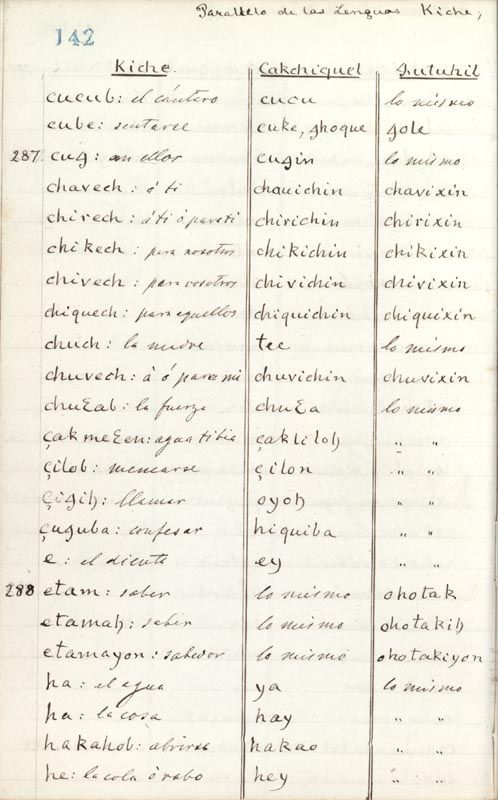 Paralelo de las Lenguas Kiche,
142
Kiche. Cakchiquel Zutuhil
cucub: el cántero cucu lo mismo
cube: sentarse cuke, ghoque gole
287. cug: en ellos cugin lo mismo
chavech: á ti chauichin chavixin
chirech: á ti ó para ti chirichin chirixin
chikech: para nosotros chikichin chikixin
chivech: para vosotros chivichin chivixin
chiquech: para aquellos chiquichin chiquixin
chuch: la madre tee lo mismo
chuvech: á ó para mi chuvichin chuvixin
chuꜫab: la fuerza chuꜫa lo mismo
çakmeꜫen: agua tibia çakliloh " "
çilob: menearse çilon " "
çigih: llamar oyoh " "
çuguba: confesar hiquiba " "
e: el diente ey " "
288 etam: saber lo mismo ohotak
etamah: saber lo mismo ohotakih
etamayon: sabedor lo mismo ohotakiyon
ha: el agua ya lo mismo
ha: la cosa hay " "
hakahob: abrirse hakao " "
he: la cola ó rabo hey " "